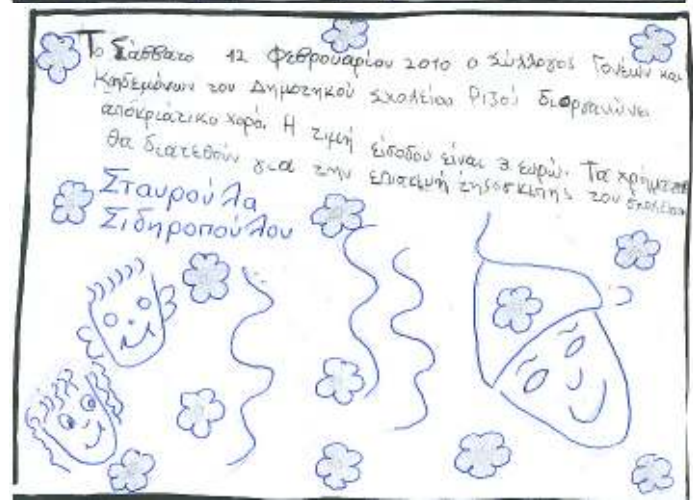 Το Σάββατο 12 Φεβρουαρίου 2010 ο Σύλλογος Γονέων και
Κηδεμόνων του Δημοτηκού Σχολείου Ριζού διοργανώνει
αποκριάτικο χορό. Η τιμή εισόδου είναι 3 ευρώ. Τα χρήματα
θα διατεθούν για την επισκευή της σκεπής του σχολείου
Σταυρούλα
Σιδηροπούλου